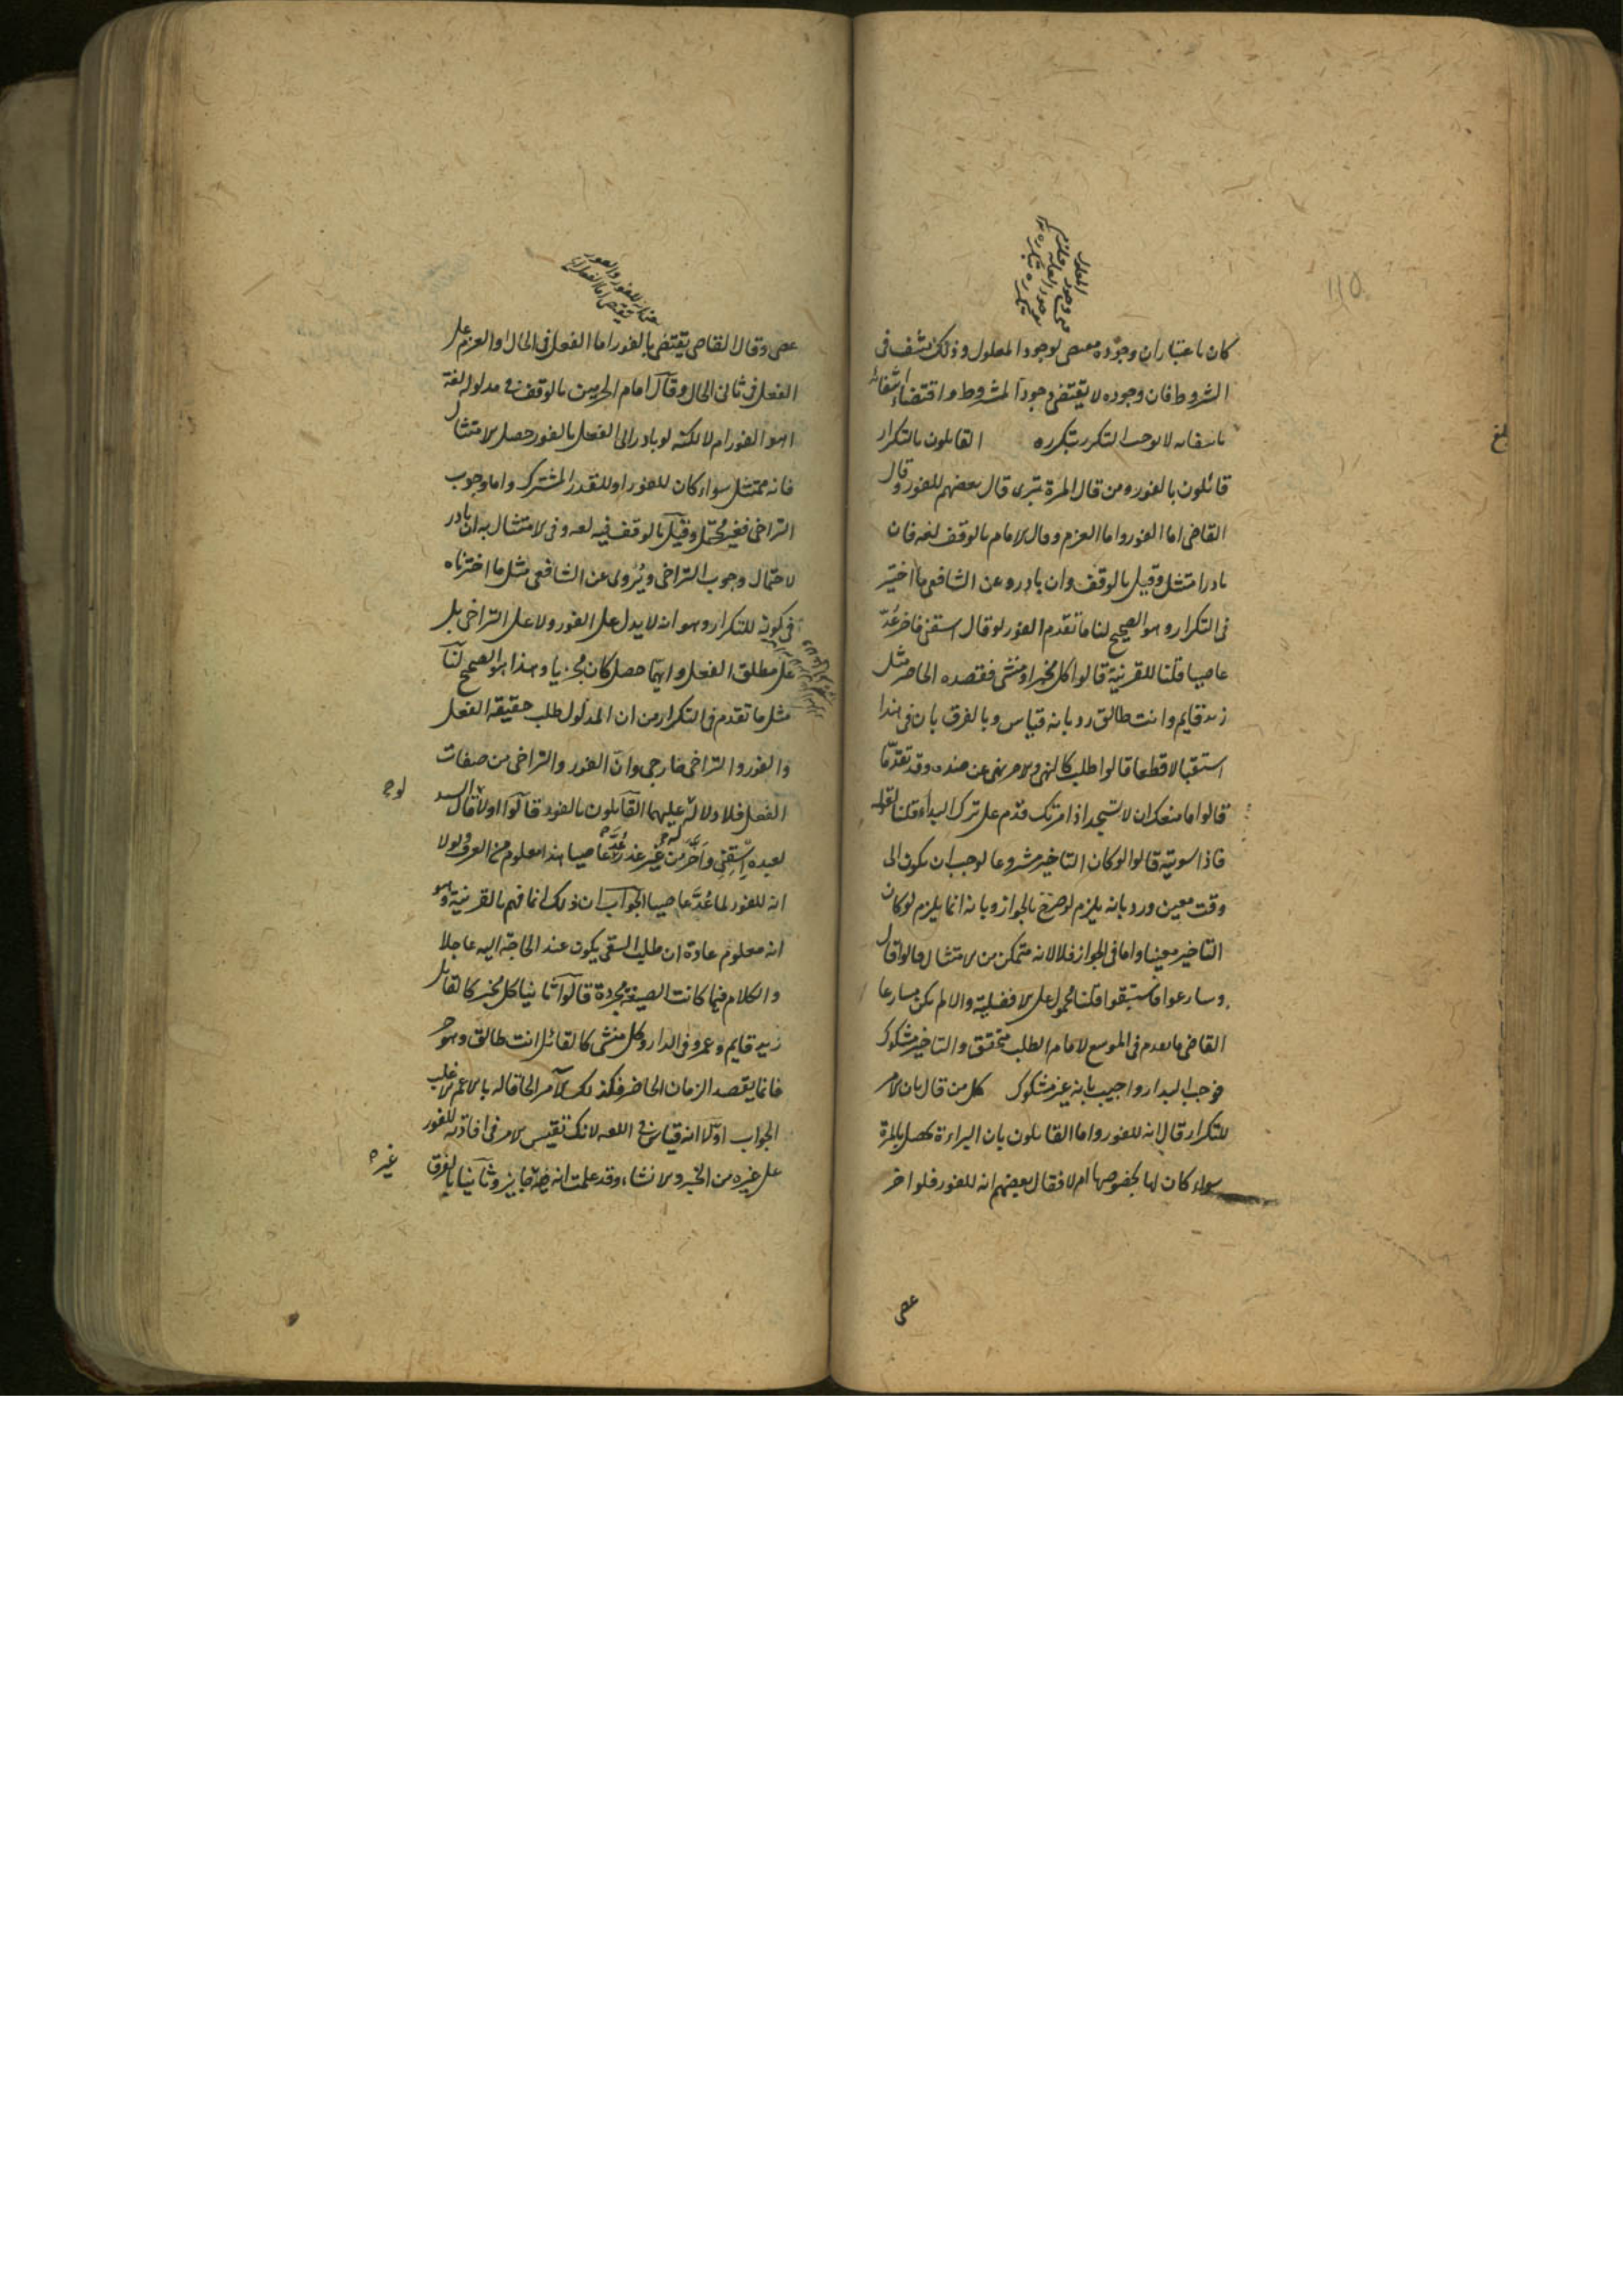 كان باعتبار ان وجوده مقتضى لوجود المعلول وذلك منتف فى
الشروط فان وجوده لا يقتضى وجود المشروط واقتضاء انتفائه
بانتفائه لا يوجب التكرر بتكرره القايلون بالتكرار
قائلون بالفور ومن قال المرة تبرى قال بعضهم للفور وقال
القاضى اما الفور واما العزم وقال الامام بالوقف لغة فان
بادر امتثل وقيل بالوقف وان بادر وعن الشافعى ما اختير
فى التكرار وهو الصحيح لنا ما تقدم الفور لو قال اسقنى فاخر عدّ
عاصيا قلنا للقرينة قالوا كل مخبر او منشى فقصده الحاضر مثل
زيد قايم وانت طالق رد بانه قياس وبالفرق بان فى هذا
استقبالا قطعا قالوا طلب كالنهى والامر نهى عن ضده وقد تقدّما
قالوا ما منعك ان لا تسجد اذ امرتك فذم على ترك البدار قلنا لقوله
فاذا سويته قالوا لو كان التاخير مشروعا لوجب ان يكون الى
وقت معين ورد بانه يلزم لو صرّح بالجواز وبانه انما يلزم لو كان
التاخير معينا واما فى الجواز فلا لانه متمكن من الامتثال قالوا قال
وسارعوا فاستبقوا قلنا محمول على الافضلية والا لم يكن مسارعا
القاضى ما تقدم فى الموسع الامام الطلب متحقق والتاخير مشكوك
فوجب البدار واجيب بانه غير مشكوك كل من قال بان الامر
للتكرار قال انه للفور واما القايلون بان البراءة تحصل بالمرة
سواء كان لها بخصوصها ام لا فقال بعضهم انه للفور فلو اخر
عصى
بلغ
عصى وقال القاضى يقتضى بالفور اما الفعل فى الحال او العزم على
الفعل فى ثانى الحال وقال امام الحرمين بالوقف فى مدلوله لغة
اهو الفور ام لا لكنه لو بادر الى الفعل بالفور حصل الامتثال
فانه ممتثل سواء كان للفور او للقدر المشترك واما وجوب
التراخى فغير محتمل وقيل بالوقف فيه لغة وفى الامتثال به ان بادر
لاحتمال وجوب التراخى ويُروى عن الشافعى مثل ما اخترناه
فى كونه للتكرار وهو انه لا يدل على الفور ولا على التراخى بل
على مطلق الفعل وايهما حصل كان مجزيا وهذا هو الصحيح لنا
مثل ما تقدم فى التكرار من ان المدلول طلب حقيقة الفعل
والفور والتراخى خارجى وان الفور والتراخى من صفات
الفعل فلا دلالة عليهما القايلون بالفور قالوا اولا لو قال السيد
لعبده اسقنى واخّر من غير عذر عُدّ عاصيا هذا معلوم من العرف ولولا
انه للفور لما عُدّ عاصيا الجواب ان ذلك انما فهم بالقرينة وهو
انه معلوم عادة ان طلب السقى يكون عند الحاجة اليه عاجلا
والكلام فيما كانت الصيغة مجردة قالوا ثانيا كل مخبر كالقايل
زيد قايم وعمرو فى الدار وكل منشى كالقائل انت طالق وهو حر
فانما يقصد الزمان الحاضر فكذلك الامر الحاقا له بالاعم الاغلب
الجواب اولا انه قياس فى اللغة لانك تقيس الامر فى افادته للفور
على غيره من الخبر والانشاء وقد علمت انه غير جايز وثانيا بالفرق
غيره